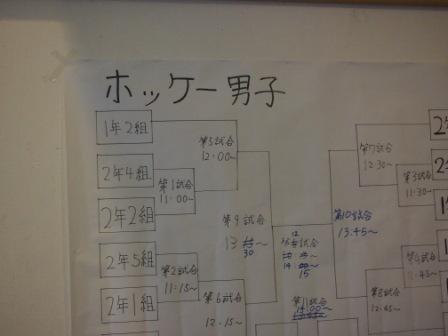 ホッケー男子
1年2組
第5試合
12:00~
第7試合
12:30~
2年4組
第1試合
11:00~
第3試合
11:30~
2年2組
第9試合
13
30~
12
15
第10試合
13.45~
2年5組
第2試合
11:15~
第4試合
第8試合
12:45~
2年1組
第6試合
12.15~
第11試合
14:00~